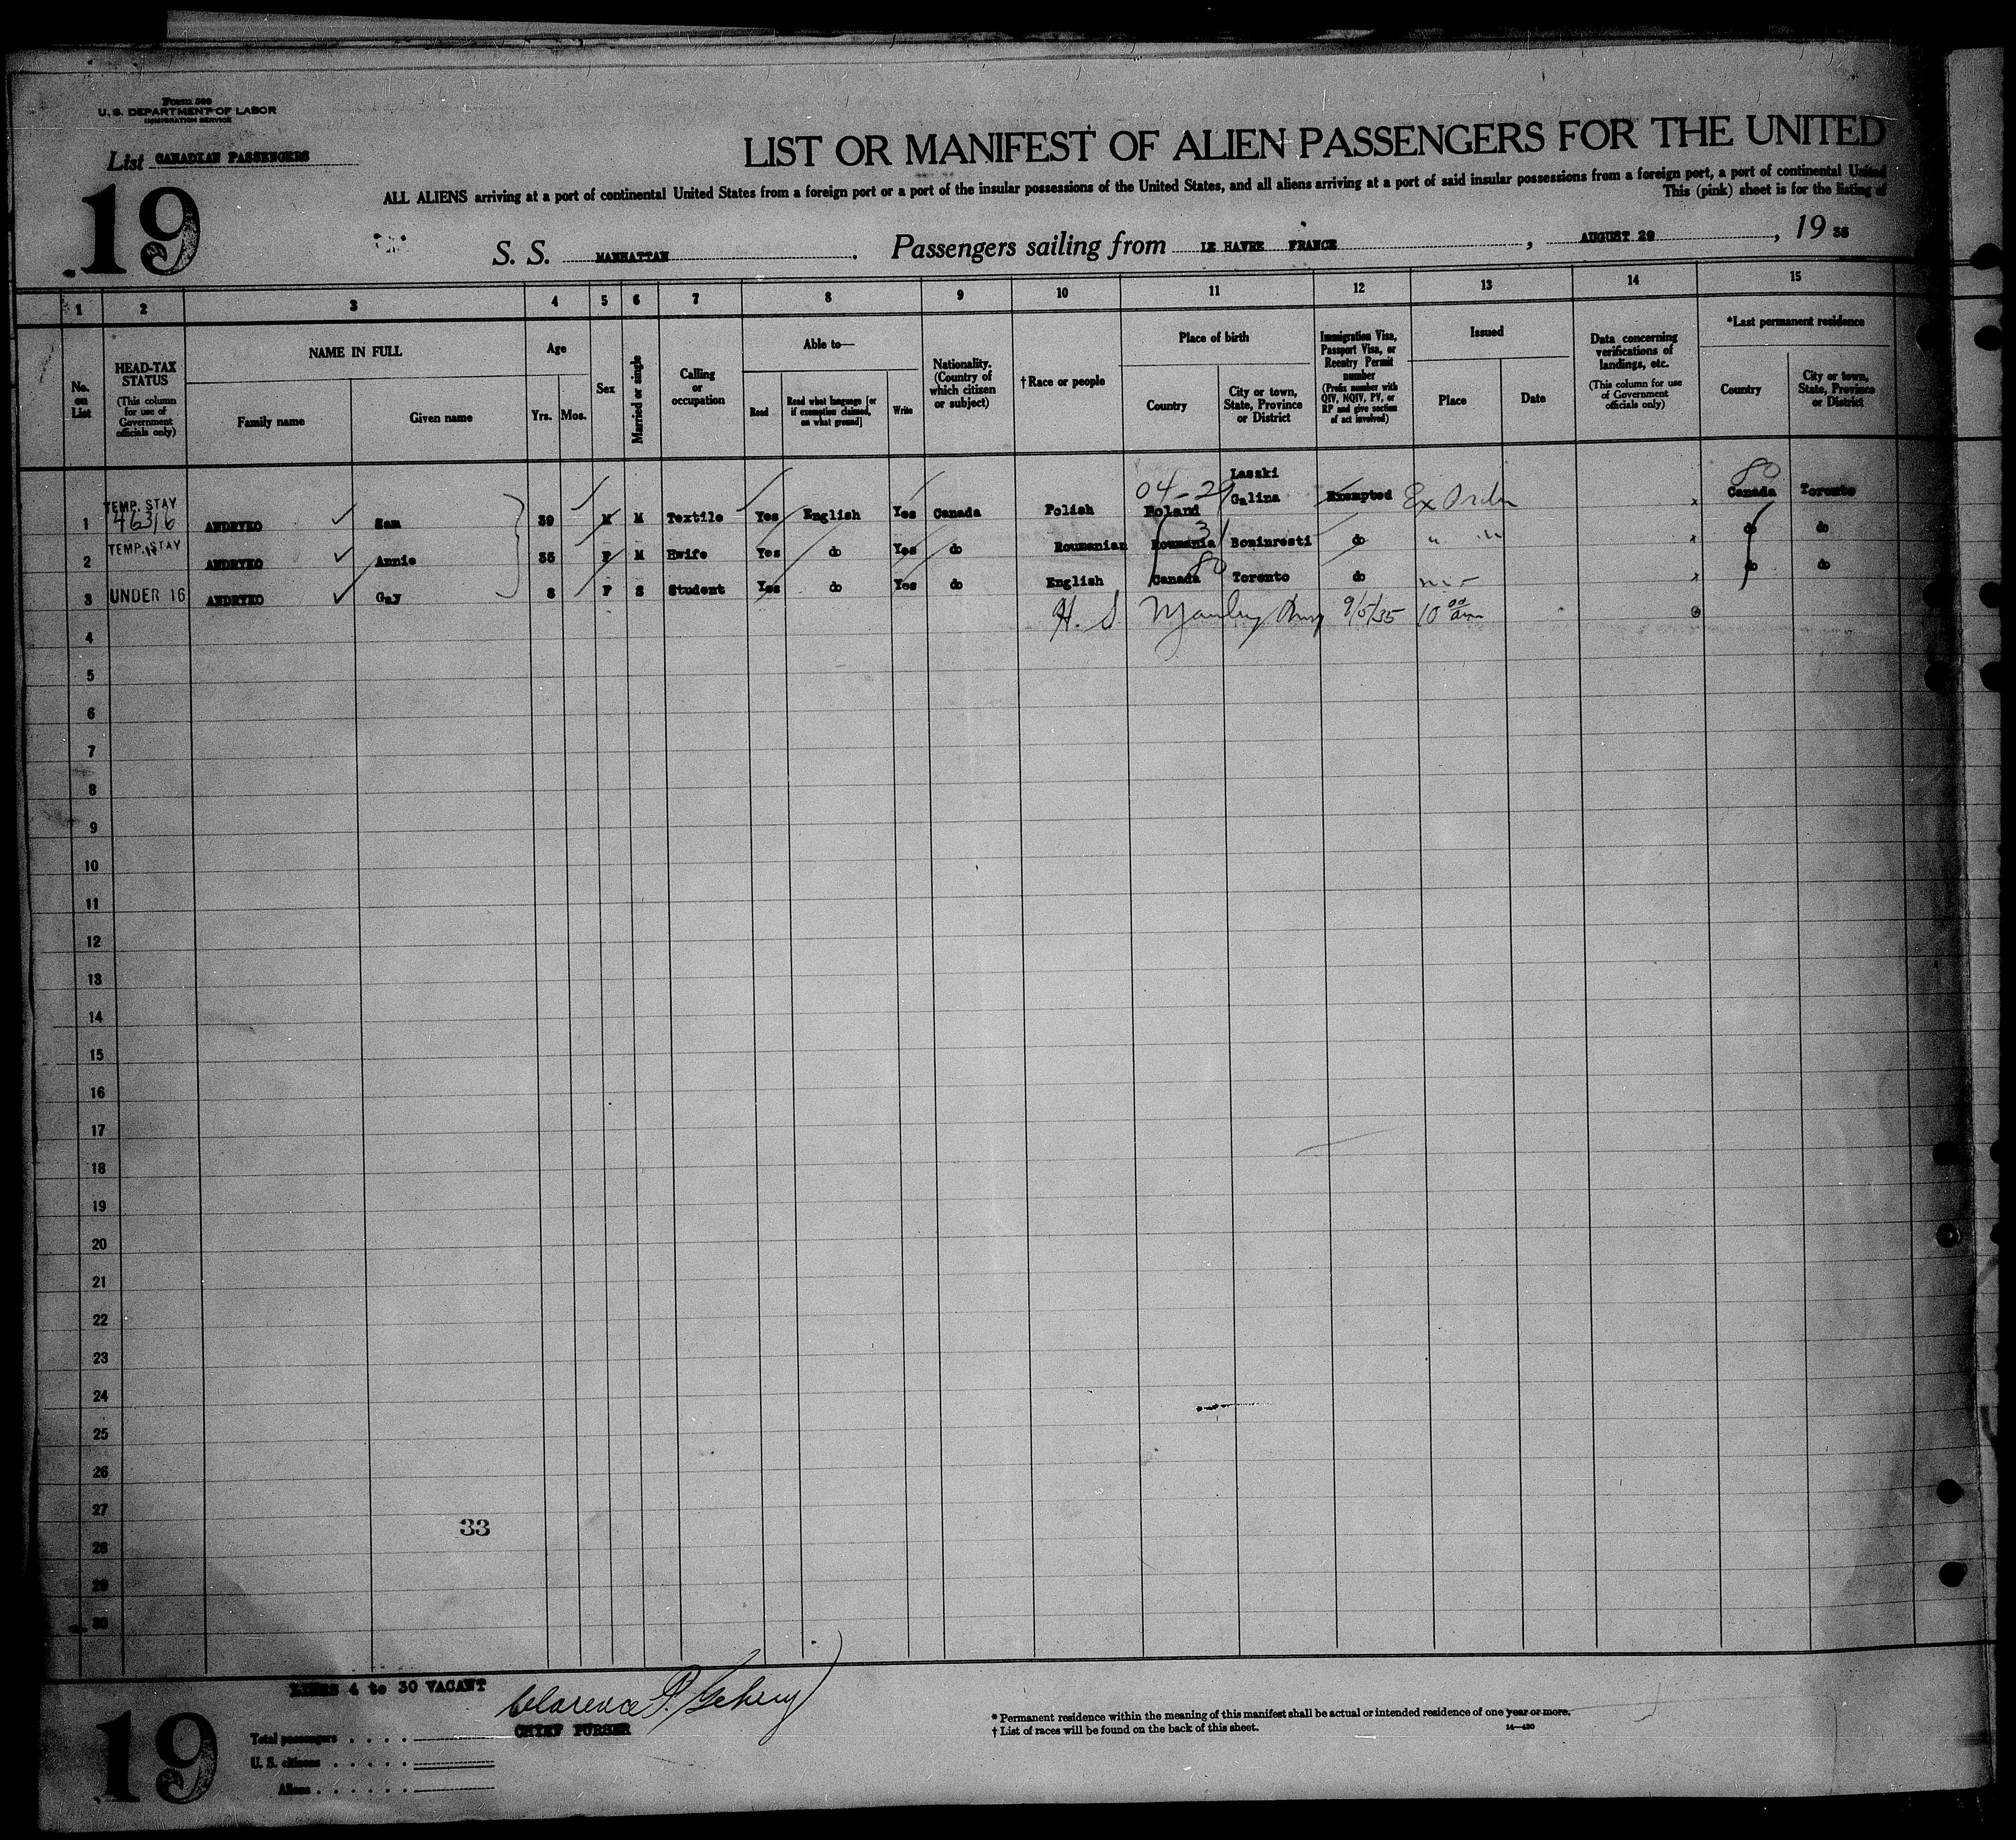 Form 500
U. S. DEPARTMENT OF LABOR
IMMIGRATION SERVICE
List CANADIAN PASSENGERS
19
LIST OR MANIFEST OF ALIEN PASSENGERS FOR THE UNITED
ALL ALIENS arriving at a port of continental United States from a foreign port or a port of the insular possessions of the United States, and all aliens arriving at a port of said insular possessions from a foreign port, a port of continental United
This (pink) sheet is for the listing of
S. S. MANHATTAN. Passengers sailing from LE HAVRE FRANCE, AUGUST 29, 19 35
1 2 3 4 5 6 7 8 9 10 11 12 13 14 15
No. on List
HEAD-TAX STATUS
(This column for use of Government officials only)
NAME IN FULL
Family name
Given name
Age
Yrs. Mos.
Sex
Married or single
Calling or occupation
Able to—
Read
Read what language [or if exemption claimed, on what ground]
Write
Nationality. (Country of which citizen or subject)
† Race or people
Place of birth
Country
City or town, State, Province or District
Immigration Visa, Passport Visa, or Reentry Permit number
(Prefix number with QIV, NQIV, PV, or RP and give section of act involved)
Issued
Place
Date
Data concerning verifications of landings, etc.
(This column for use of Government officials only)
*Last permanent residence
Country
City or town, State, Province or District
Laszki
04-29
80
1 TEMP. STAY 46316 ANDRYKO Sam 39 M M Textile Yes English Yes Canada Polish Poland Galina Exempted Ex Order Canada Toronto
31
2 TEMP. STAY ANDRYKO Annie 35 F M Hwife Yes do Yes do Roumanian Roumania Boninresti do " " do do
80
3 UNDER 16 ANDRYKO Gay 8 F S Student Yes do Yes do English Canada Toronto do do do
4 H. S. 9/5/35 10 00 am
5
6
7
8
9
10
11
12
13
14
15
16
17
18
19
20
21
22
23
24
25
26
27
33
28
29
30
LINES 4 to 30 VACANT
Clarence P.
CHIEF PURSER
19
Total passengers
U. S. citizens
Aliens
* Permanent residence within the meaning of this manifest shall be actual or intended residence of one year or more.
† List of races will be found on the back of this sheet.
14—420